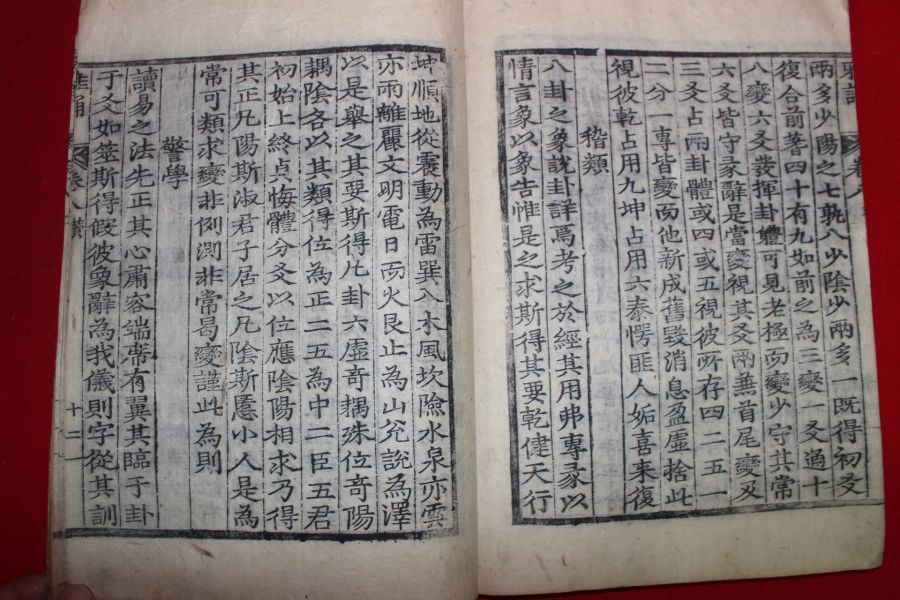 雅誦 卷八
兩多少陽之七孰八少陰少兩多一既得初爻
復合前蓍四十有九如前之為三變一爻通十
八變六爻發揮卦體可見老極而變少守其常
六爻皆守彖辭是當變視其爻兩兼首尾變及
三爻占兩卦體或四或五視彼所存四二五一
二分一專皆變而他新成舊毀消息盈虛捨此
視彼乾占用九坤占用六泰愕匪人姤喜來復
稽類
八卦之象說卦詳焉考之於經其用弗專彖以
情言象以象告惟是之求斯得其要乾健天行
坤順地從震動為雷巽入木風坎險水泉亦雲
亦雨離麗文明電日而火艮止為山兌說為澤
以是舉之其要斯得凡卦六虛奇耦殊位奇陽
耦陰各以其類得位為正二五為中二臣五君
初始上終貞悔體分爻以位應陰陽相求乃得
其正凡陽斯淑君子居之凡陰斯慝小人是為
常可類求變非例測非常曷變謹此為則
警學
讀易之法先正其心肅容端席有翼其臨于卦
于爻如筮斯得假彼象辭為我儀則字從其訓
雅誦 卷八 贊 十二